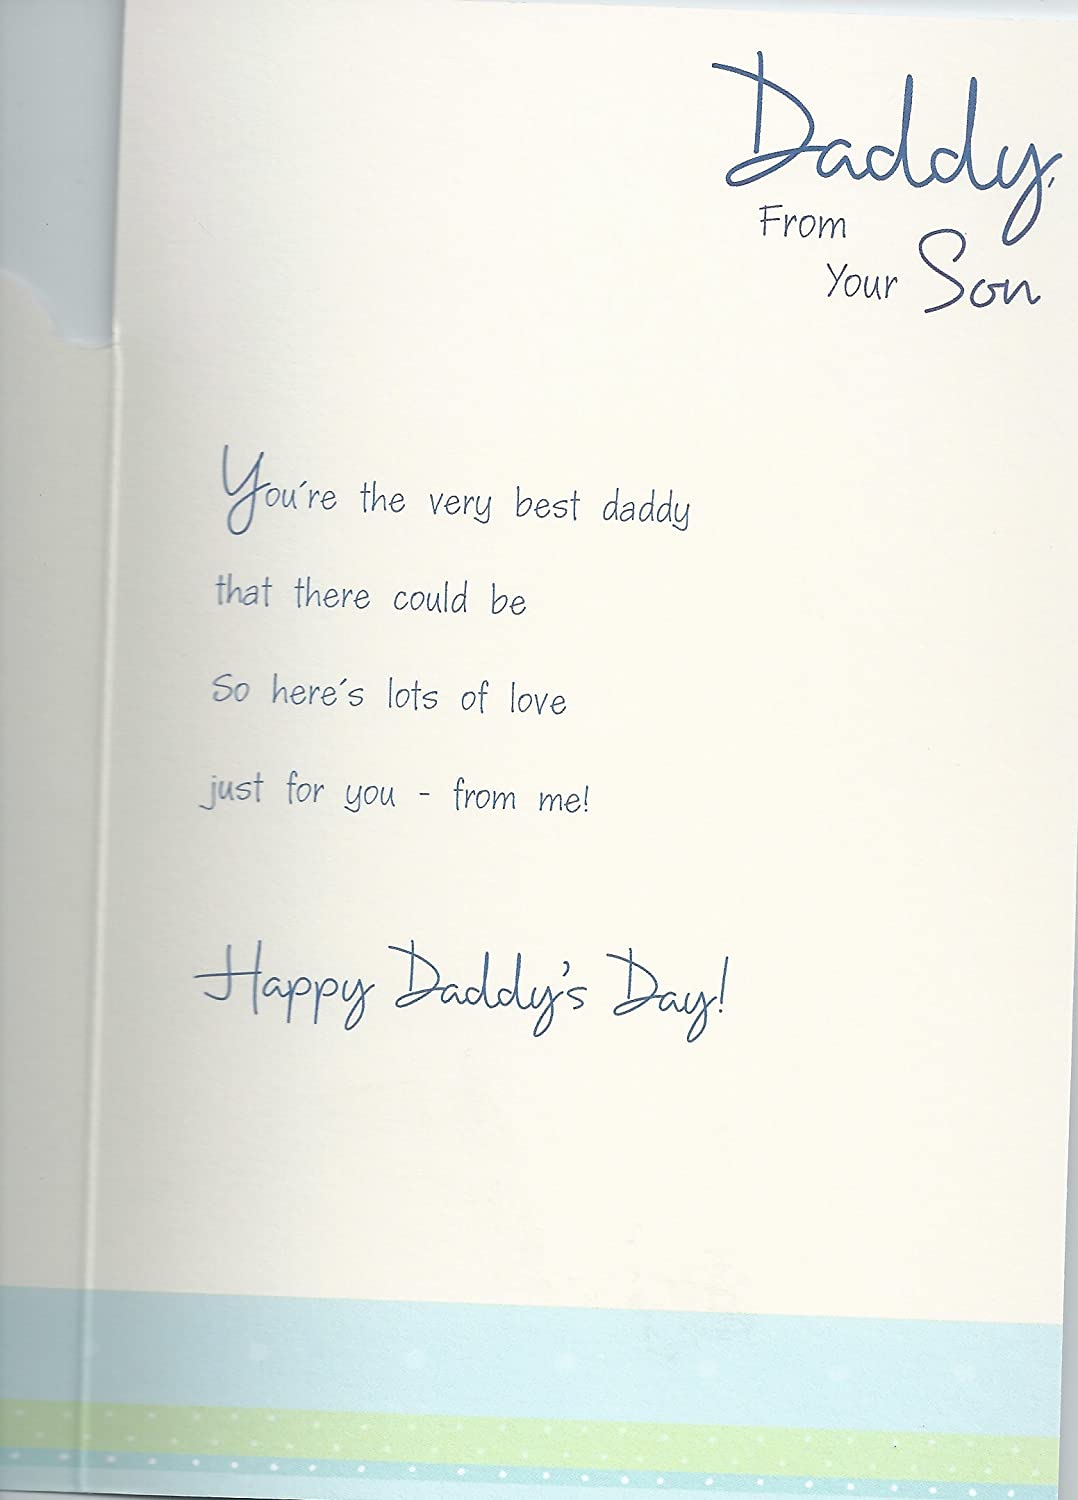 Daddy,
From
Your Son
You're the very best daddy
that there could be
So here's lots of love
just for you - from me!
Happy Daddy's Day!